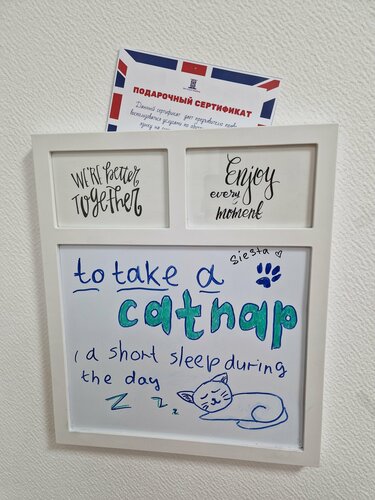 ПОДАРОЧНЫЙ СЕРТИФИКАТ
Данный сертификат дает
WE'RE better
TOGETHER
Enjoy
every
moment
siesta
to take a
catnap
a short sleep during
the day
z z z